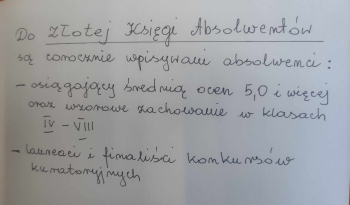 Do Złotej Księgi Absolwentów
są corocznie wpisywani absolwenci:
- osiągający średnią ocen 5,0 i więcej
oraz wzorowe zachowanie w klasach
IV - VIII
- laureaci i finaliści konkursów
kuratoryjnych